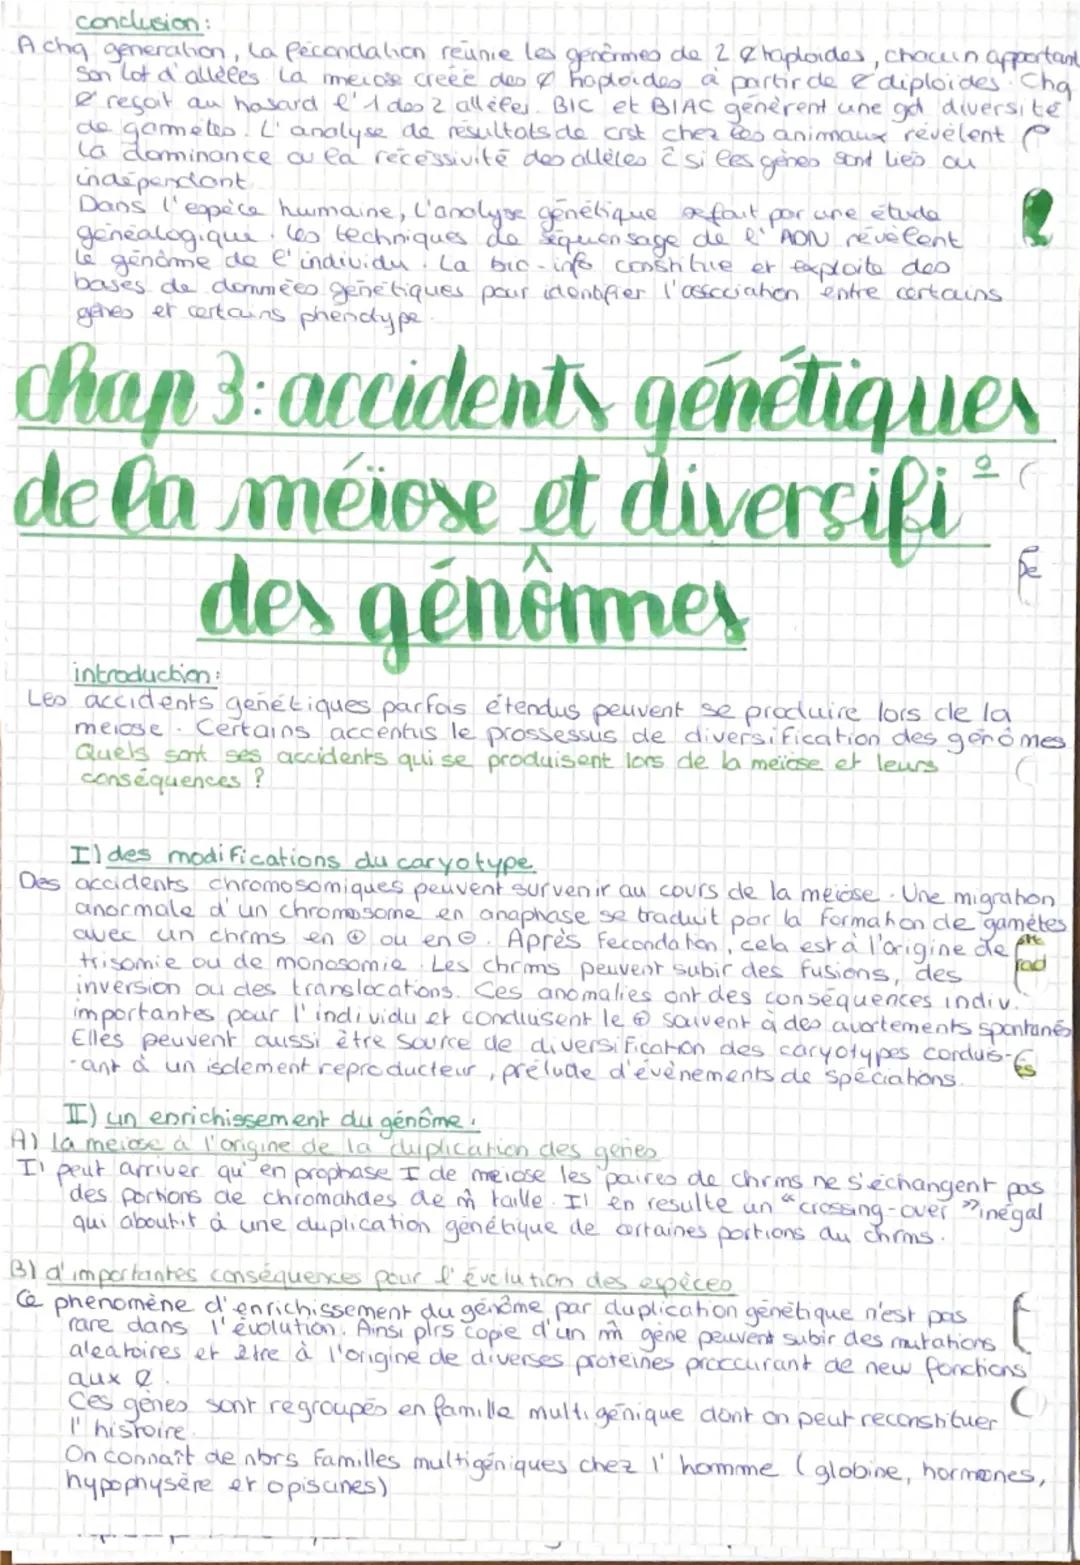 conclusion:
A chq géneration, la fécondation réunie les génômes de 2 haploïdes, chacun apportant
son lot d'allèles. La meiose creéé des haploïdes à partir de diploïdes. Chq
reçoit au hasard l'1 des 2 allèles. BIC et BIAC génèrent une gd diversité
de gamètes. L'analyse de résultats de crst chez les animaux révèlent
la dominance ou la récéssivité des allèles si les gènes sont liés ou
indépendant
Dans l'espèce humaine, l'analyse génétique se fait par une étude
généalogique. les techniques de séquensage de l'ADN révèlent
le génôme de l'individu. La bio-info constitue et exploite des
bases de données génétiques pour identifier l'association entre certains
gènes et certains phénotype.
chap 3: accidents génétiques
de la méïose et diversifi°
des génômes
introduction:
Les accidents génétiques parfois étendus peuvent se produire lors de la
meiose. Certains accentus le prossessus de diversification des génômes
Quels sont ses accidents qui se produisent lors de la meiose et leurs
conséquences ?
I) des modifications du caryotype
Des accidents chromosomiques peuvent survenir au cours de la meiose. Une migration
anormale d'un chromosome en anaphase se traduit par la formation de gamètes
avec un chrms en ⊕ ou en ⊖. Après fecondation, cela est à l'origine de
trisomie ou de monosomie. Les chrms peuvent subir des fusions, des
inversion ou des translocations. Ces anomalies ont des conséquences indiv.
importantes pour l'individu et conduisent le ⊕ souvent à des avortements spontanés
Elles peuvent aussi être source de diversification des caryotypes conduis-
-ant à un isolement reproducteur, prélude d'évènements de spéciations.
II) un enrichissement du génôme.
A) la meiose à l'origine de la duplication des gènes
Il peut arriver qu'en prophase I de meiose les paires de chrms ne s'échangent pas
des portions de chromatides de m̂ taille. Il en resulte un "crossing-over" inégal
qui aboutit à une duplication génétique de certaines portions du chrms.
B) d'importantes conséquences pour l'évolution des espèces
Ce phénomène d'enrichissement du génôme par duplication génétique n'est pas
rare dans l'évolution. Ainsi plrs copie d'un m̂ gène peuvent subir des mutations
aléatoires et être à l'origine de diverses proteines procurant de new fonctions
aux
Ces gènes sont regroupés en famille multigénique dont on peut reconstituer
l'histoire.
On connaît de nbrs familles multigéniques chez l'homme (globine, hormones,
hypophysère et opisines)